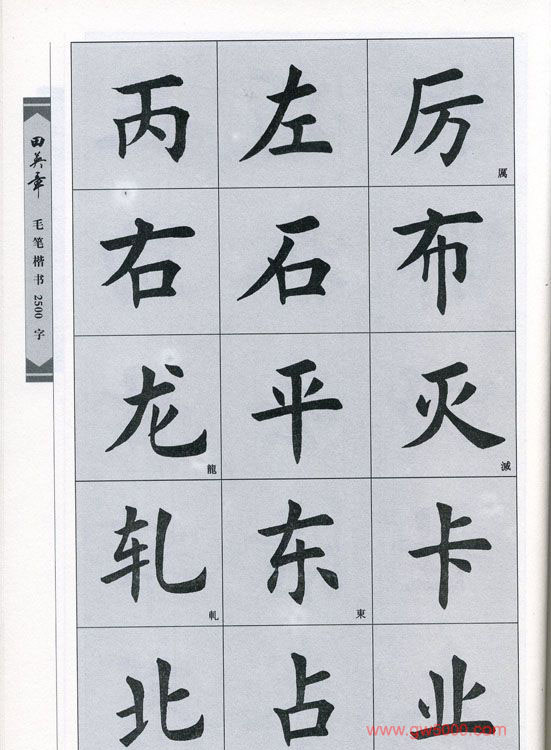 田英章 毛笔楷书 2500 字
丙 左 厉 厲
右 石 布
龙 龍 平 灭 滅
轧 軋 东 東 卡
北 占 业
www.gw5000.com